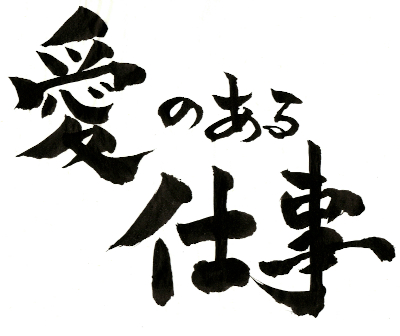 愛のある
仕事